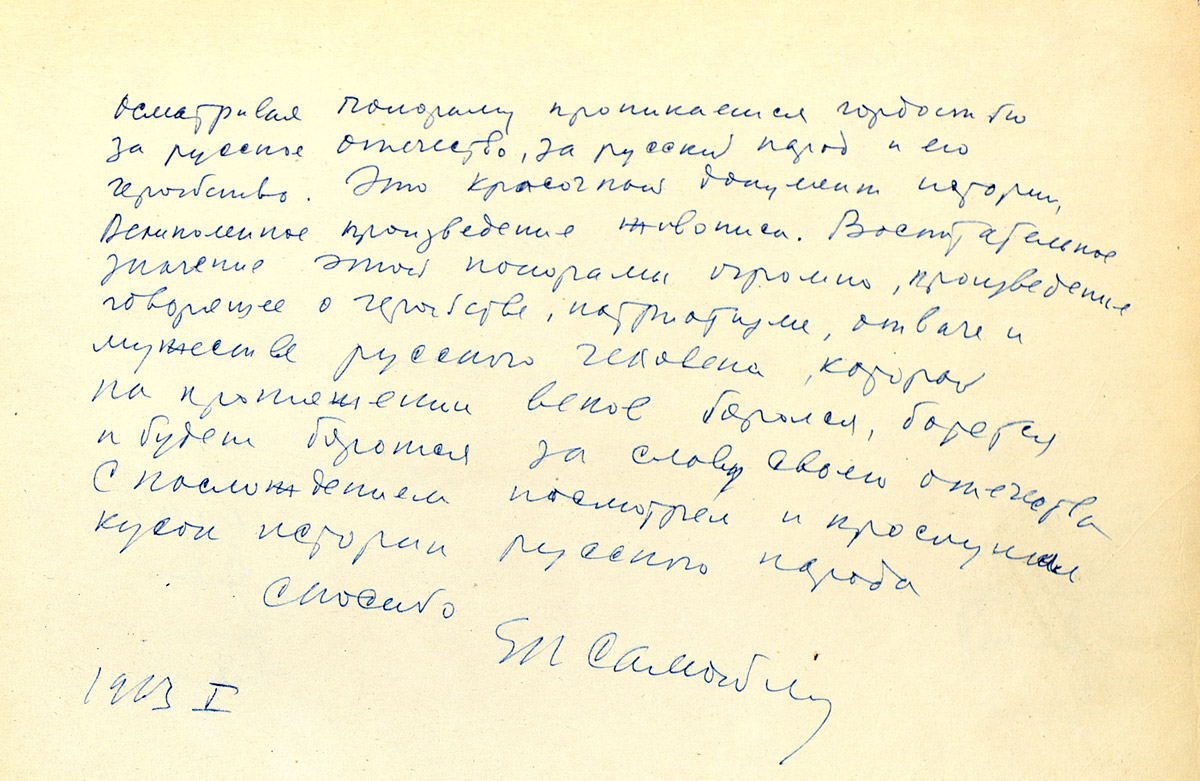 Осматривая панораму проникаешся гордостью
за русское отечество, за русский народ и его
геройство. Это красочный документ истории,
великолепное произведение живописи. Воспитательное
значение этой панорамы огромно, произведение
говорящее о геройстве, патриотизме, отваге и
мужестве русского человека, который
на протяжении веков боролся, борется
и будет бороться за славу своего отечества
С наслаждением посмотрел и прослушал
кусок истории русского народа
Спасибо
Самойлов
1963 I